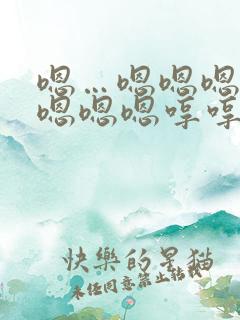 嗯…嗯嗯嗯
嗯嗯嗯哼哼
快樂的星猫
未经同意禁止转载